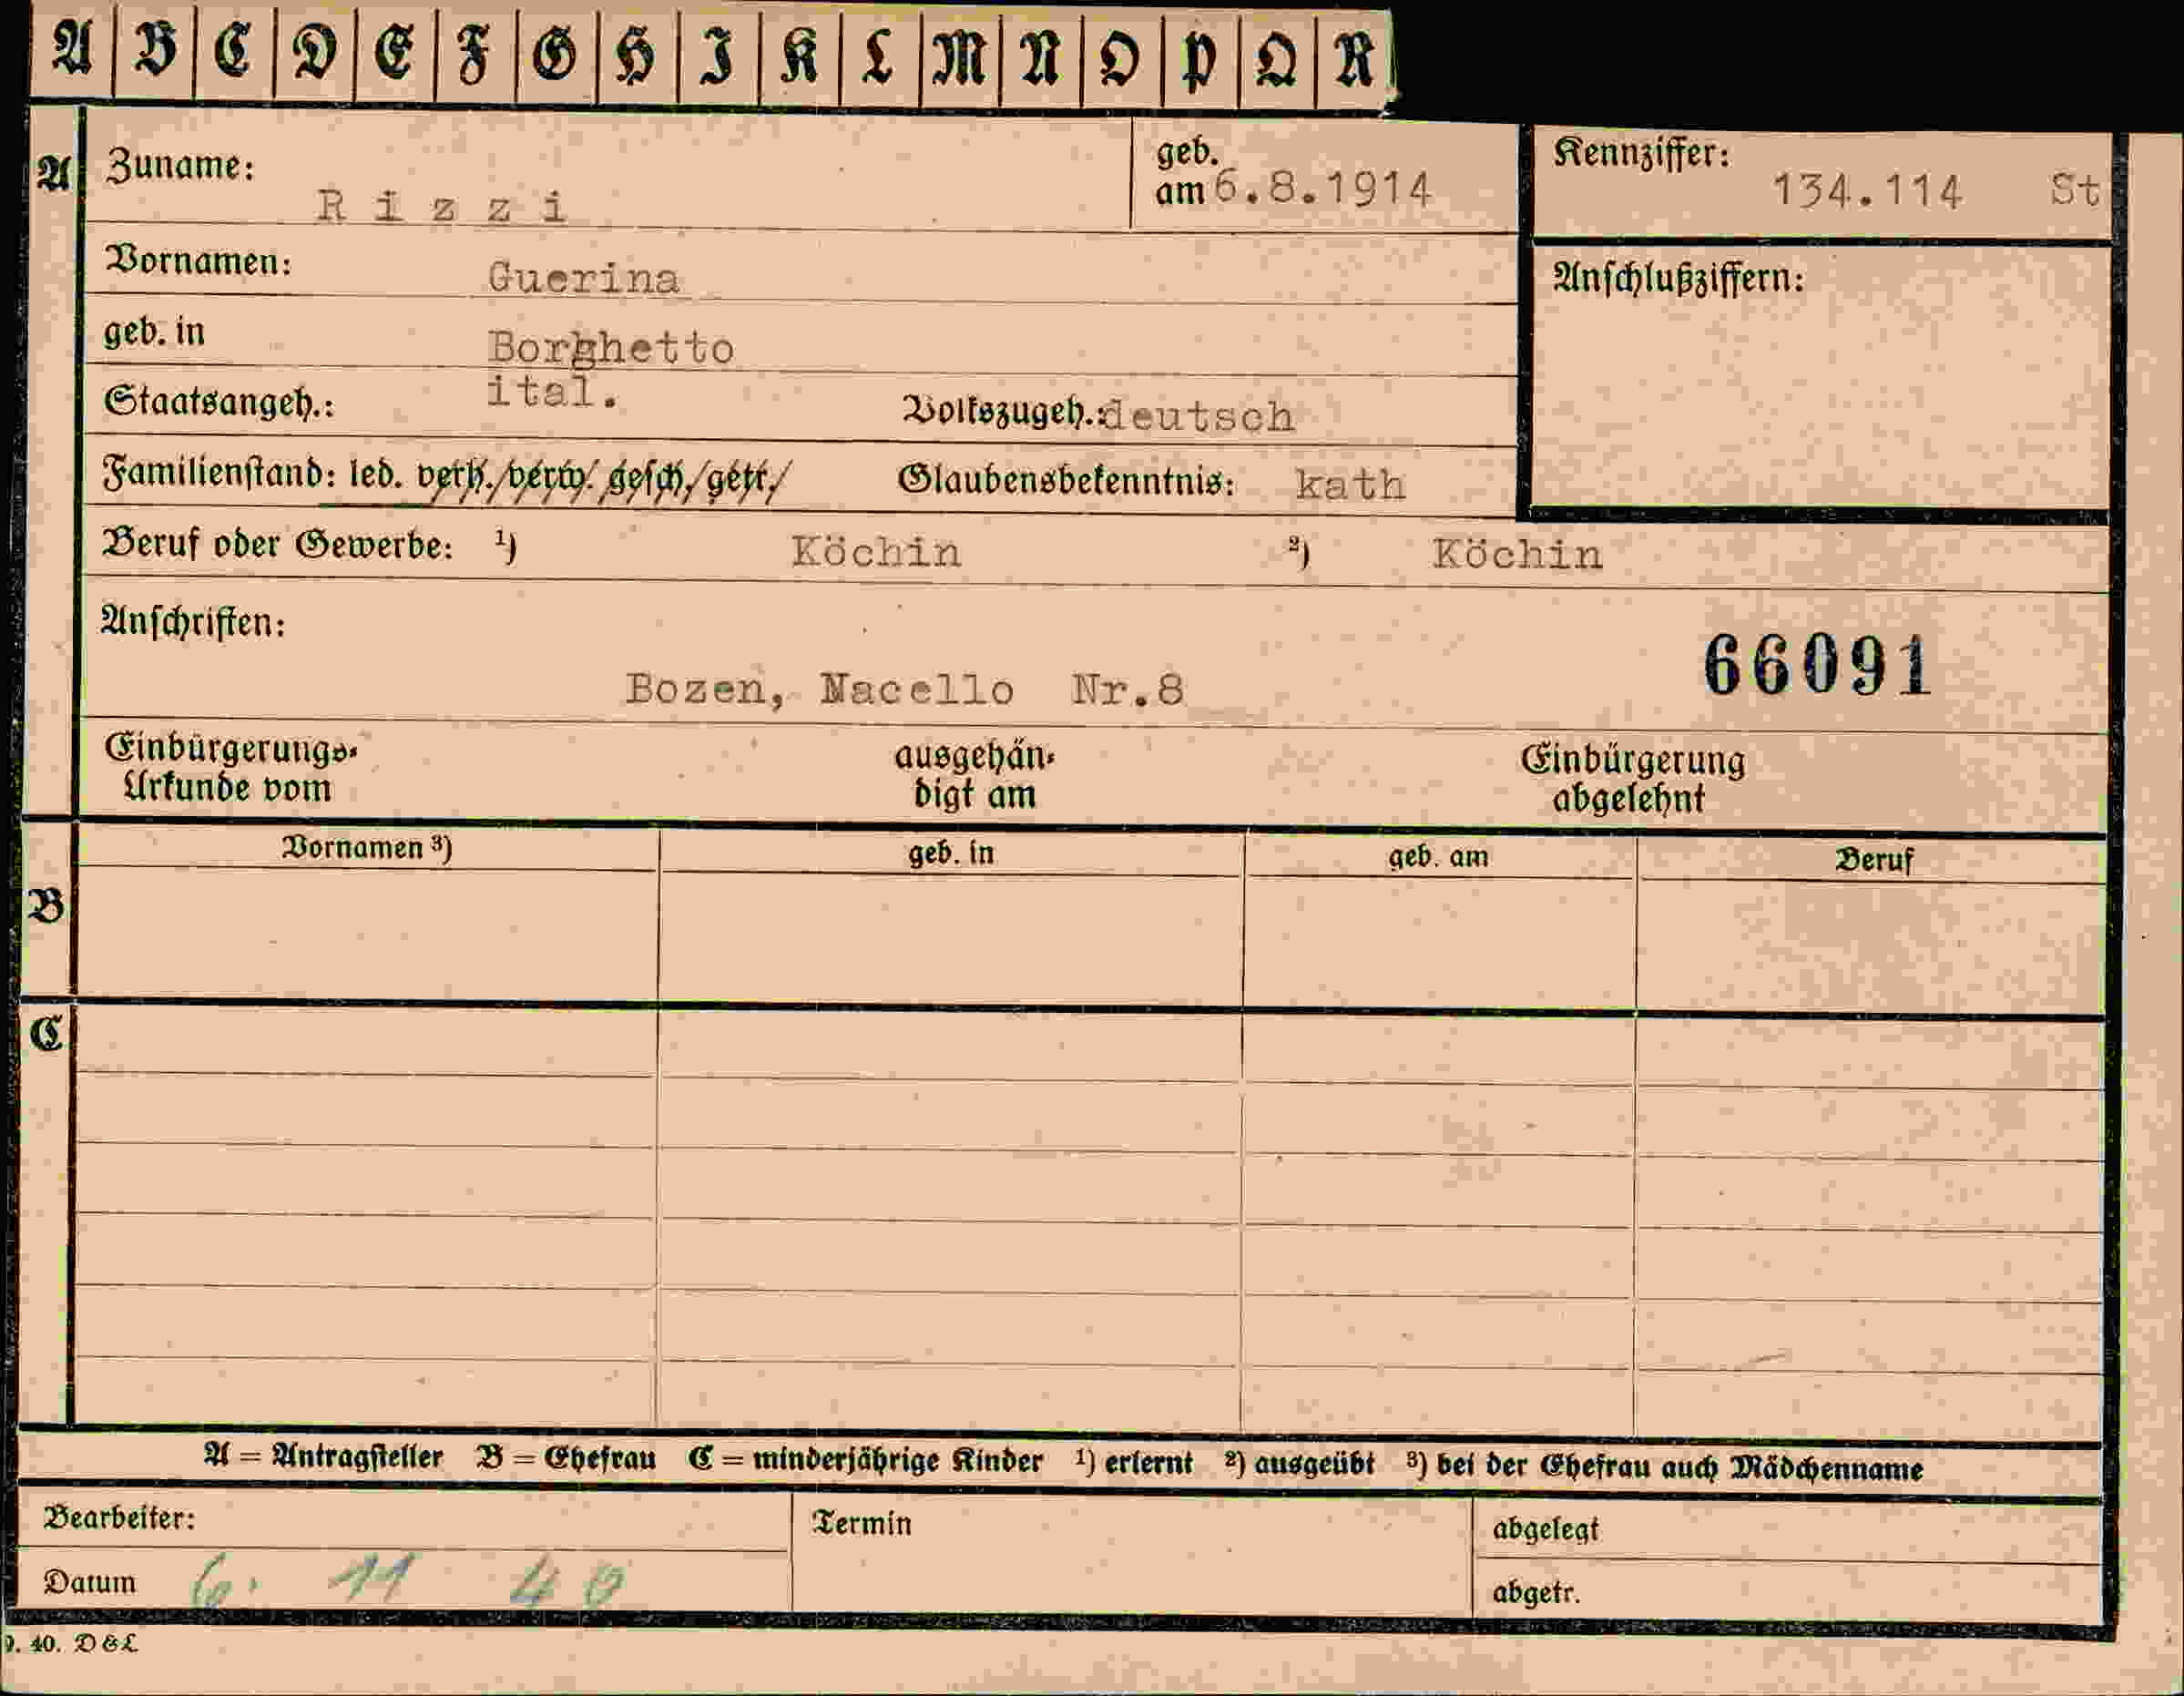 A B C D E F G H I K L M N O P Q R
A Zuname: R i z z i geb. am 6.8.1914 Kennziffer: 134.114 St
Vornamen: Guerina Anschlußziffern:
geb. in Borghetto
Staatsangeh.: ital. Volkszugeh.: deutsch
Familienstand: led. verh. verw. gesch. getr. Glaubensbekenntnis: kath
Beruf oder Gewerbe: ¹) Köchin ²) Köchin
Anschriften:
Bozen, Nacello Nr.8 66091
Einbürgerungs- ausgehän- Einbürgerung
Urkunde vom digt am abgelehnt
Vornamen ³) geb. in geb. am Beruf
B
C
A = Antragsteller B = Ehefrau C = minderjährige Kinder ¹) erlernt ²) ausgeübt ³) bei der Ehefrau auch Mädchenname
Bearbeiter: Termin abgelegt
Datum 6. 11 40 abgetr.
9. 40. D & L